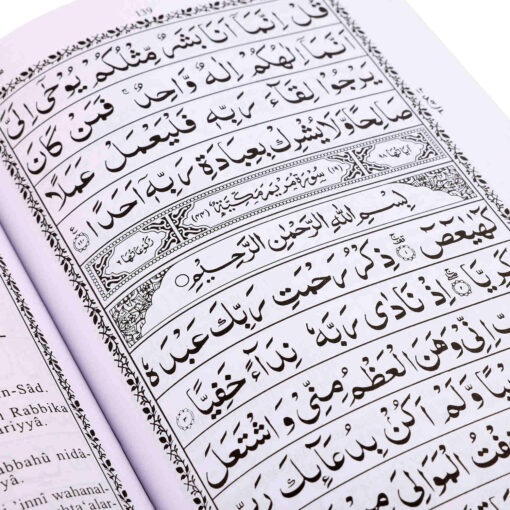 139
قُلْ اِنَّمَآ اَنَا بَشَرٌ مِّثْلُكُمْ يُوْحٰٓى اِلَىَّ
نَّمَآ اِلٰهُكُمْ اِلٰهٌ وَّاحِدٌ ۚ فَمَنْ كَانَ
يَرْجُوْا لِقَآءَ رَبِّهٖ فَلْيَعْمَلْ عَمَلًا
صَالِحًا وَّلَا يُشْرِكْ بِعِبَادَةِ رَبِّهٖٓ اَحَدًا
(١٩) سُوْرَةُ مَرْيَمَ مَكِّيَّةٌ (٤٤)
بِسْمِ اللهِ الرَّحْمٰنِ الرَّحِيْمِ
كٓهٰيٰعٓصٓ ذِكْرُ رَحْمَتِ رَبِّكَ عَبْدَهٗ
كَرِيَّا اِذْ نَادٰى رَبَّهٗ نِدَآءً خَفِيًّا
بِّ اِنِّىْ وَهَنَ الْعَظْمُ مِنِّىْ وَ اشْتَعَلَ
يْبًا وَّلَمْ اَكُنْ بِدُعَآئِكَ رَبِّ
فْتُ الْمَوَالِىَ مِنْ
in-Sâd.
Rabbika
ariyyâ.
abbahû nidâ-
yâ.
'innî wahanal-
hta'alar-